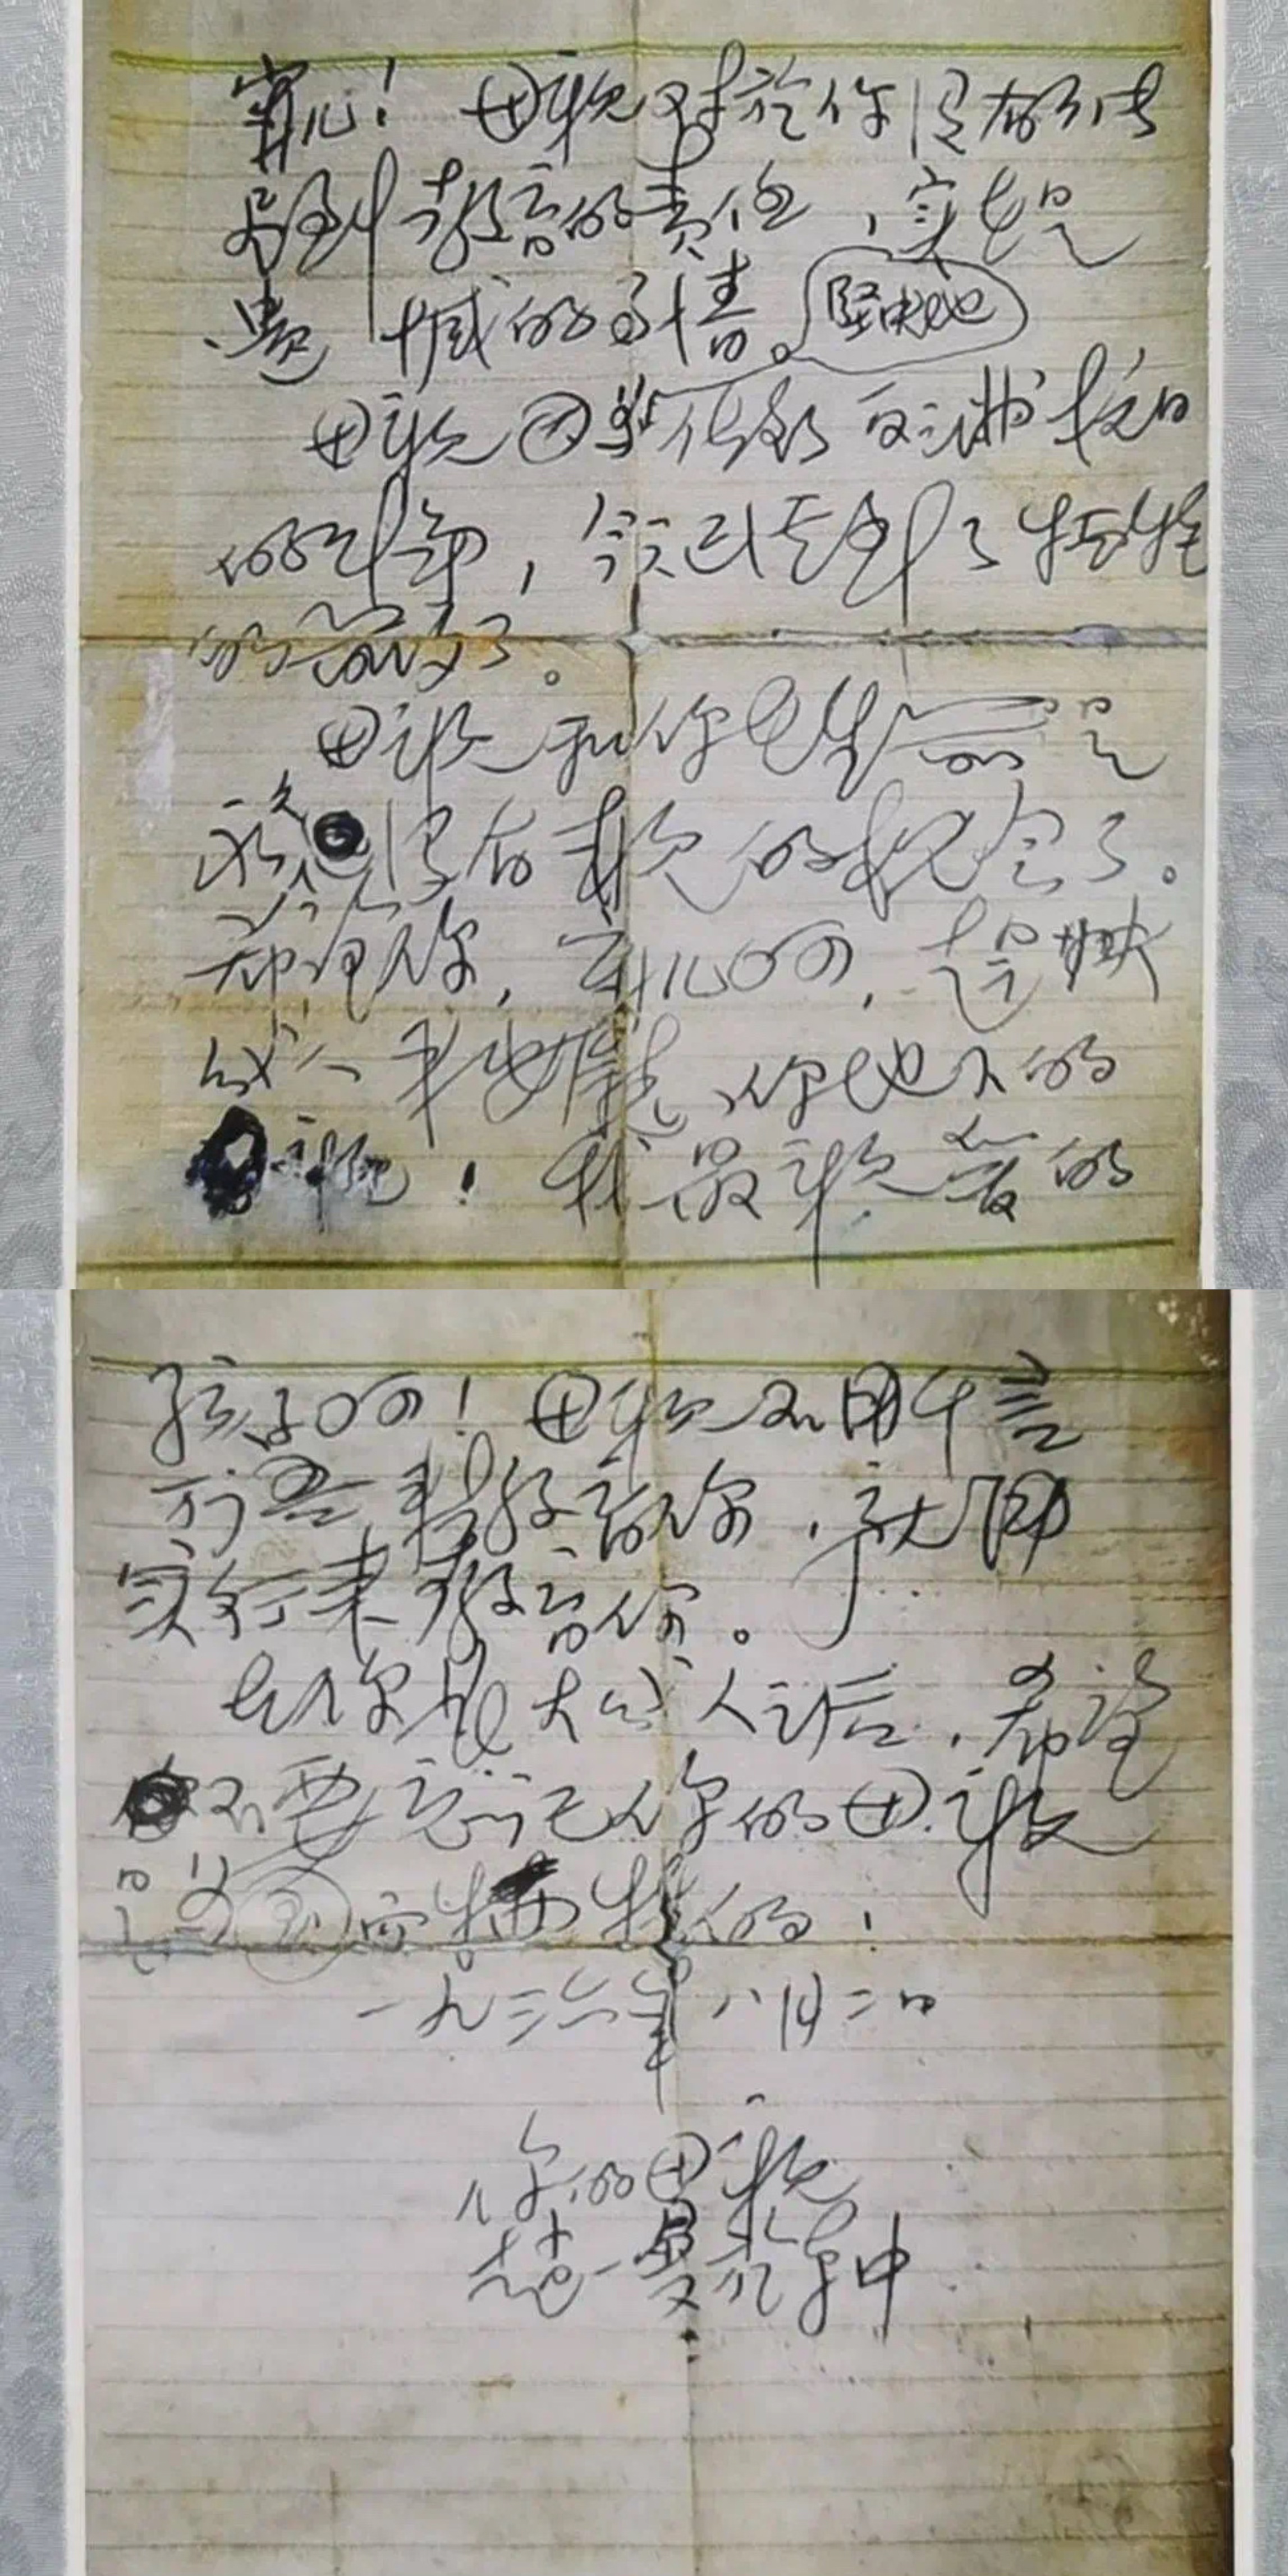 宁儿！母亲对于你没有能尽
到教育的责任，实在是
遗憾的事情。
坚决地
母亲因为做了反满抗日
的斗争，今天已经到了牺牲
的前夕了。
母亲和你在生前是
永久没有见的机会了。
希望你，宁儿啊！赶快
成人，来安慰你地下的
母亲！我最亲爱的
孩子啊！母亲不用千言
万语来教育你，就用
实行来教育你。
在你长大成人之后，希望
不要忘记你的母亲
是为国而牺牲的！
一九三六年八月二日
你的母亲
赵一曼于车中